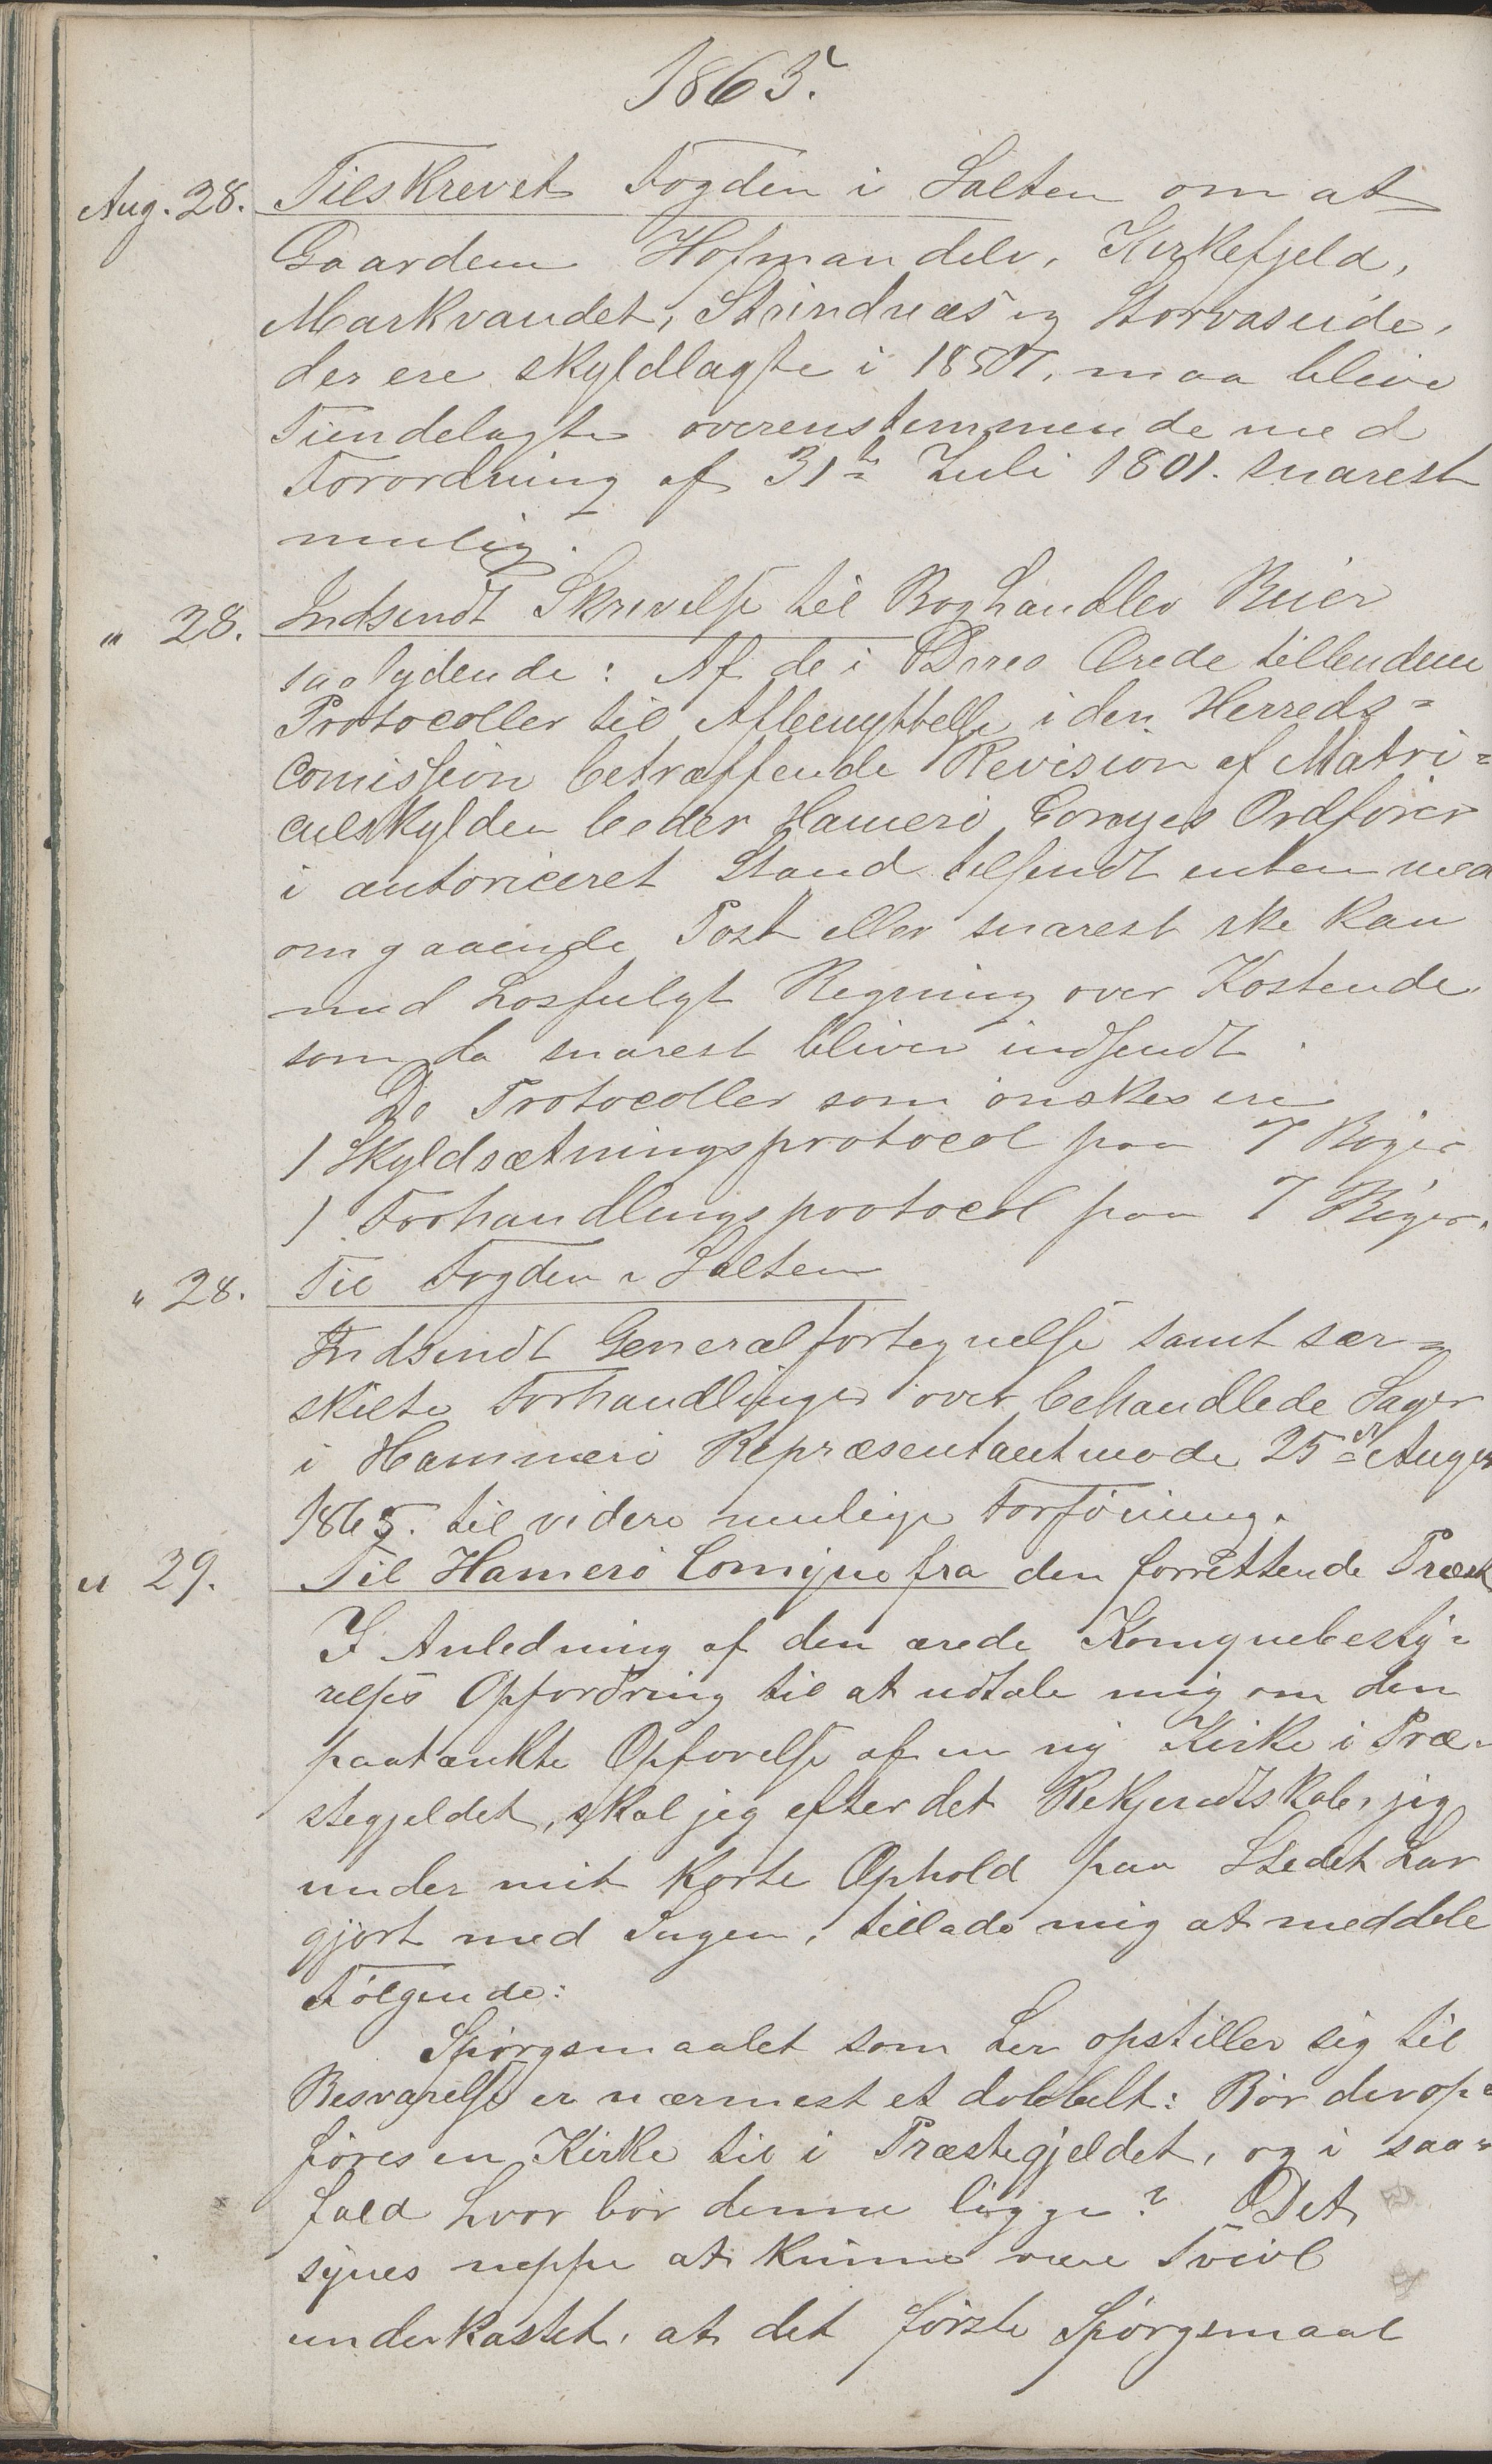 1865.
Aug. 28. Tilskrevet Fogden i Salten om at
Gaardene Hofmandelv, Kirkefjeld,
Markvandet, Strindnæs og Storvaseide,
der ere skyldlagte i 1857, maa blive
Tiendelagte overenstemmende med
Forordning af 31te Juli 1801. snarest
mulig.
" 28. Indsendt Skrivelse til Boghandler Beier
saalydende: Af de i Deres Ærede
Protocoller til Afbenyttelse i den Herreds=
Comission betræffende Revision af Matri=
culskylden beder Hamerø Comyes Ordfører
i autoriceret Stand tilsendt enten med
omgaaende Post eller snarest ske kan
med hosfulgt Regning over Kostende
som da snarest bliver indsendt.
De Protocoller som ønskes ere
1 Skyldsætningsprotocol paa 7 Bøger
1 Forhandlingsprotocol paa 7 Bøger.
" 28. Til Fogden i Salten
Indsendt Generalfortegnelse samt sær=
skilte Forhandlinger over behandlede Sager
i Hammerø Repræsentantmøde 25de August
1865. til videre mulige Forføining.
" 29. Til Hamerø Comyne fra den forrettende Præst
I Anledning af den ærede Komynebesty=
relses Opfordring til at udtale mig om den
paatænkte Opførelse af en ny Kirke i Præ=
stegjeldet, skal jeg efter det Bekjendtskab, jeg
under mit korte Ophold paa Stedet har
gjort med Sagen, tillade mig at meddele
Følgende:
Spørgsmaalet som her opstiller sig til
Besvarelse er nærmest et dobbelt: Bør der op=
føres en Kirke til i Præstegjeldet, og i saa=
fald hvor bør denne ligge? Det
synes neppe at kunne være Tvivl
underkastet, at det første Spørgsmaal